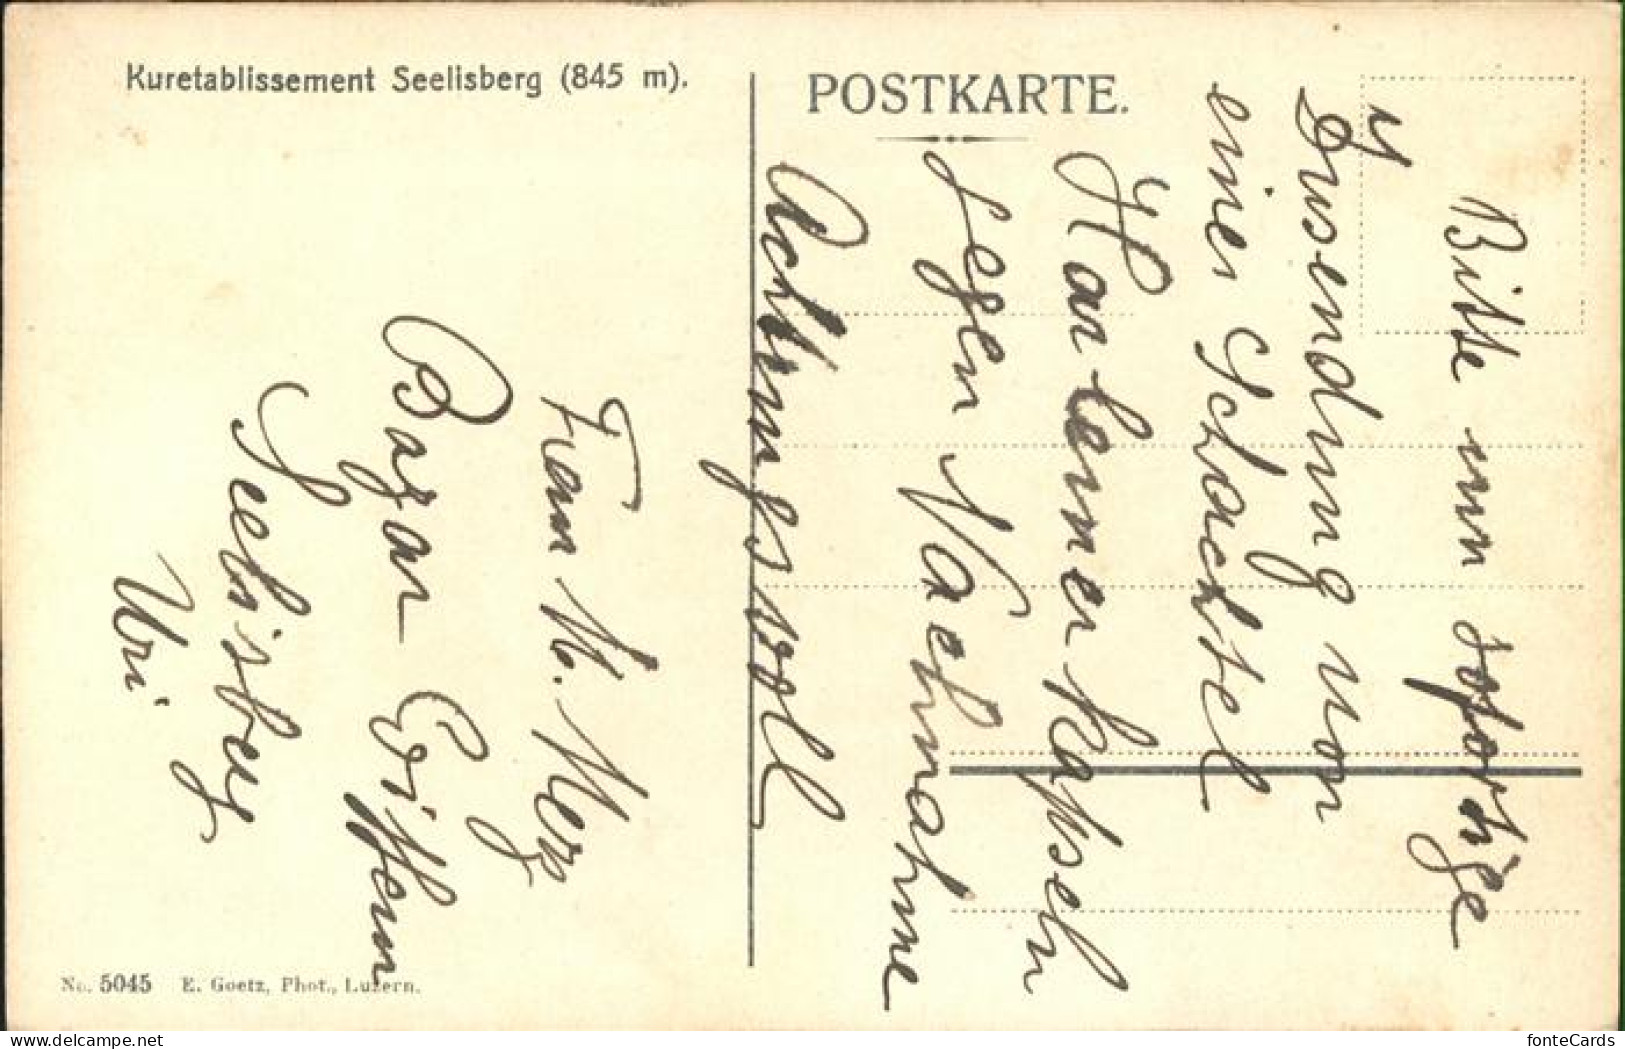 Kuretablissement Seelisberg (845 m).
POSTKARTE.
Bitte um sofortige
Zusendung von
einer Schachtel
Harlemerkapseln
gegen Nachnahme
Achtungsvoll
Frau M. Merz
Bazar
Seelisberg
Uri
No. 5045 E. Goetz, Phot., Luzern.
fonteCards